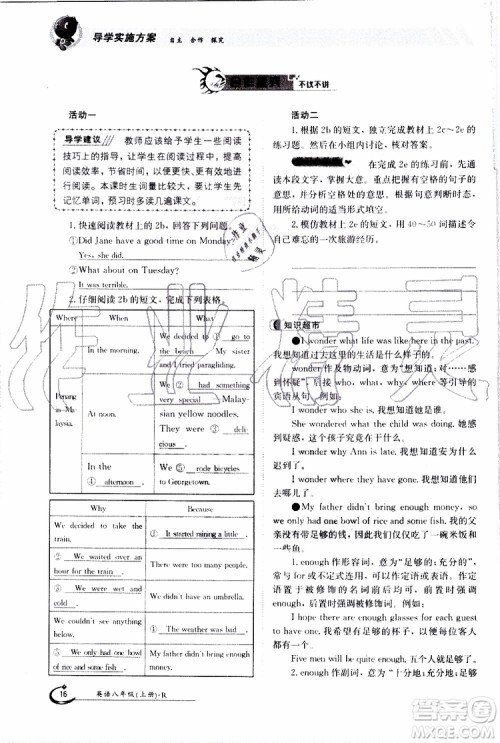 导学实施方案 自主 合作 探究
不议不讲
活动一
导学建议 教师应该给予学生一些阅读
技巧上的指导，让学生在阅读过程中，提高
阅读效率，节省时间，以便更好更有效地进
行阅读。本课时生词量很大，建议让学生先
记忆单词，预习时多读几遍课文。
1.快速阅读教材上 2b 的短文，回答下列问题。
①Did Jane have a good time on Monday?
Yes, she did.
②What about on Tuesday?
It was terrible.
2.仔细阅读 2b 的短文，完成下列表格。
Where When What
Penang
in Ma-
laysia.
In the morning.
We ① go to
the beach. My sister
and I tried paragliding.
At noon.
We ② had something
very special Malay-
sian yellow noodles.
They were ③ deli-
cious.
In the
④ afternoon.
We ⑤ rode bicycles
to Georgetown.
Why Because
We decided to take the
train.
① It started raining a little.
② We waited over an
hour for the train.
There were too many
people.
③ We were wet and
cold.
We didn't have an umbrella.
We couldn't see
anything below.
④ The weather was bad.
⑤ We only had one bowl
of rice and some fish.
My father didn't bring
enough money.
活动二
1.根据 2b 的短文，独立完成教材上 2c~2e 的
练习题。然后在小组内讨论，核对答案。
在完成 2c 的练习前，要先通
读本段文字，掌握大意，根据句子的
意思，并根据每个句子的时态，用所给动词的适当形式填空。
2.模仿教材上 2e 的短文，用 40～50 词描述令
你难忘的一次旅游经历。
知识超市
●I wonder what life was like here in the past. 我
想知道过去这里的生活是什么样的。
wonder 作及物动词，意为“想知道；对……感
到怀疑”，其后常接 who, what, why 等引导的
宾语从句。例如：
I wonder who she is. 我想知道她是谁。
She wondered what the child was doing. 她
感到疑惑，这个孩子正在做什么。
I wonder why Ann is late. 我想知道安为什么
迟到了。
I wonder where they have gone. 我想知道他
们去哪儿了。
●My father didn't bring enough money, so
we only had one bowl of rice and some fish. 我爸爸没
有带足够的钱，因此我们只吃了一碗米饭和
一些鱼。
enough 作形容词，意为“足够的；充分的”，
常与 for 或不定式连用。作定语时置于
被修饰的名词前后均可，前置时强调
enough，后置时强调被修饰词。例如：
I hope there are enough glasses for each guest
to have one. 我希望有足够的杯子，让每位客
人都有一个。
Five men will be quite enough. 五个人就足够了。
enough 作副词，意为“足够地；充分地；足
16 英语八年级(上册)·R